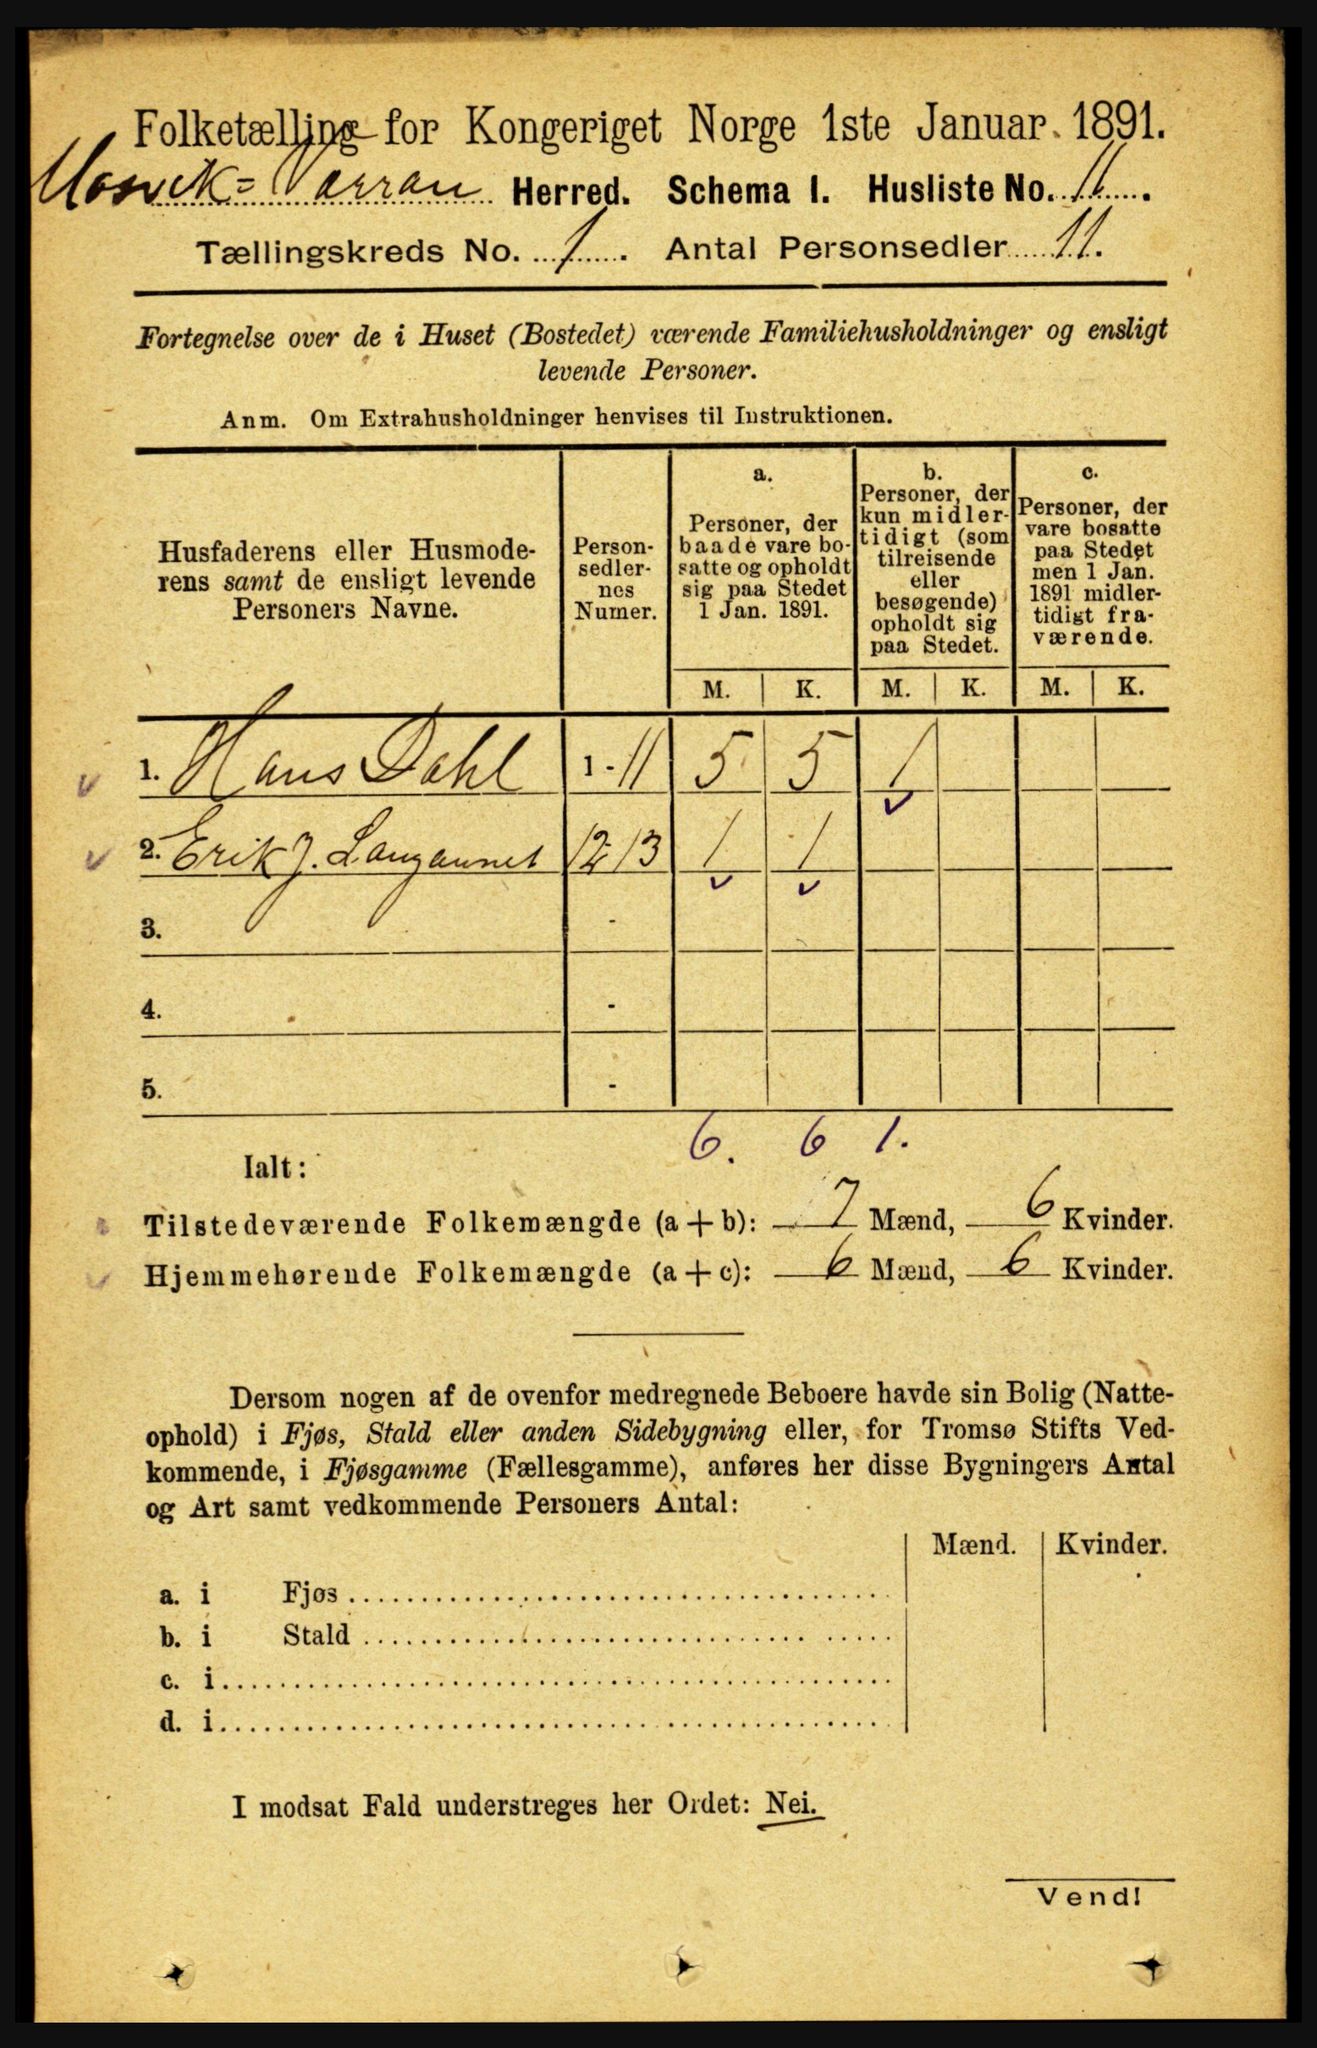 Folketælling for Kongeriget Norge 1ste Januar 1891.
Mosvik=Værran Herred. Schema I. Husliste No. 11.
Tællingskreds No. 1. Antal Personsedler 11.
Fortegnelse over de i Huset (Bostedet) værende Familiehusholdninger og ensligt
levende Personer.
Anm. Om Extrahusholdninger henvises til Instruktionen.
Husfaderens eller Husmode-
rens samt de ensligt levende
Personers Navne.
Person-
sedler-
nes
Numer.
a.
Personer, der
baade vare bo-
satte og opholdt
sig paa Stedet
1 Jan. 1891.
b.
Personer, der
kun midler-
tidigt (som
tilreisende
eller
besøgende)
opholdt sig
paa Stedet.
c.
Personer, der
vare bosatte
paa Stedet
men 1 Jan.
1891 midler-
tidigt fra-
værende.
M. K. M. K. M. K.
1. Hans Dahl 1-11 5 5 1
2. Erik J. 12-13 1 1
3. -
4. -
5. -
6. 6 1.
Ialt:
Tilstedeværende Folkemængde (a+b): 7 Mænd, 6 Kvinder.
Hjemmehørende Folkemængde (a+c): 6 Mænd, 6 Kvinder.
Dersom nogen af de ovenfor medregnede Beboere havde sin Bolig (Natte-
ophold) i Fjøs, Stald eller anden Sidebygning eller, for Tromsø Stifts Ved-
kommende, i Fjøsgamme (Fællesgamme), anføres her disse Bygningers Antal
og Art samt vedkommende Personers Antal:
Mænd. Kvinder.
a. i Fjøs
b. i Stald
c. i
d. i
I modsat Fald understreges her Ordet: Nei.
Vend!